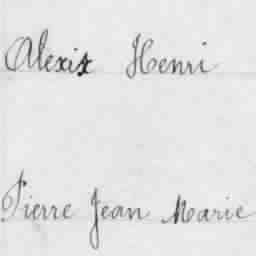 Alexis Henri
Pierre Jean Marie